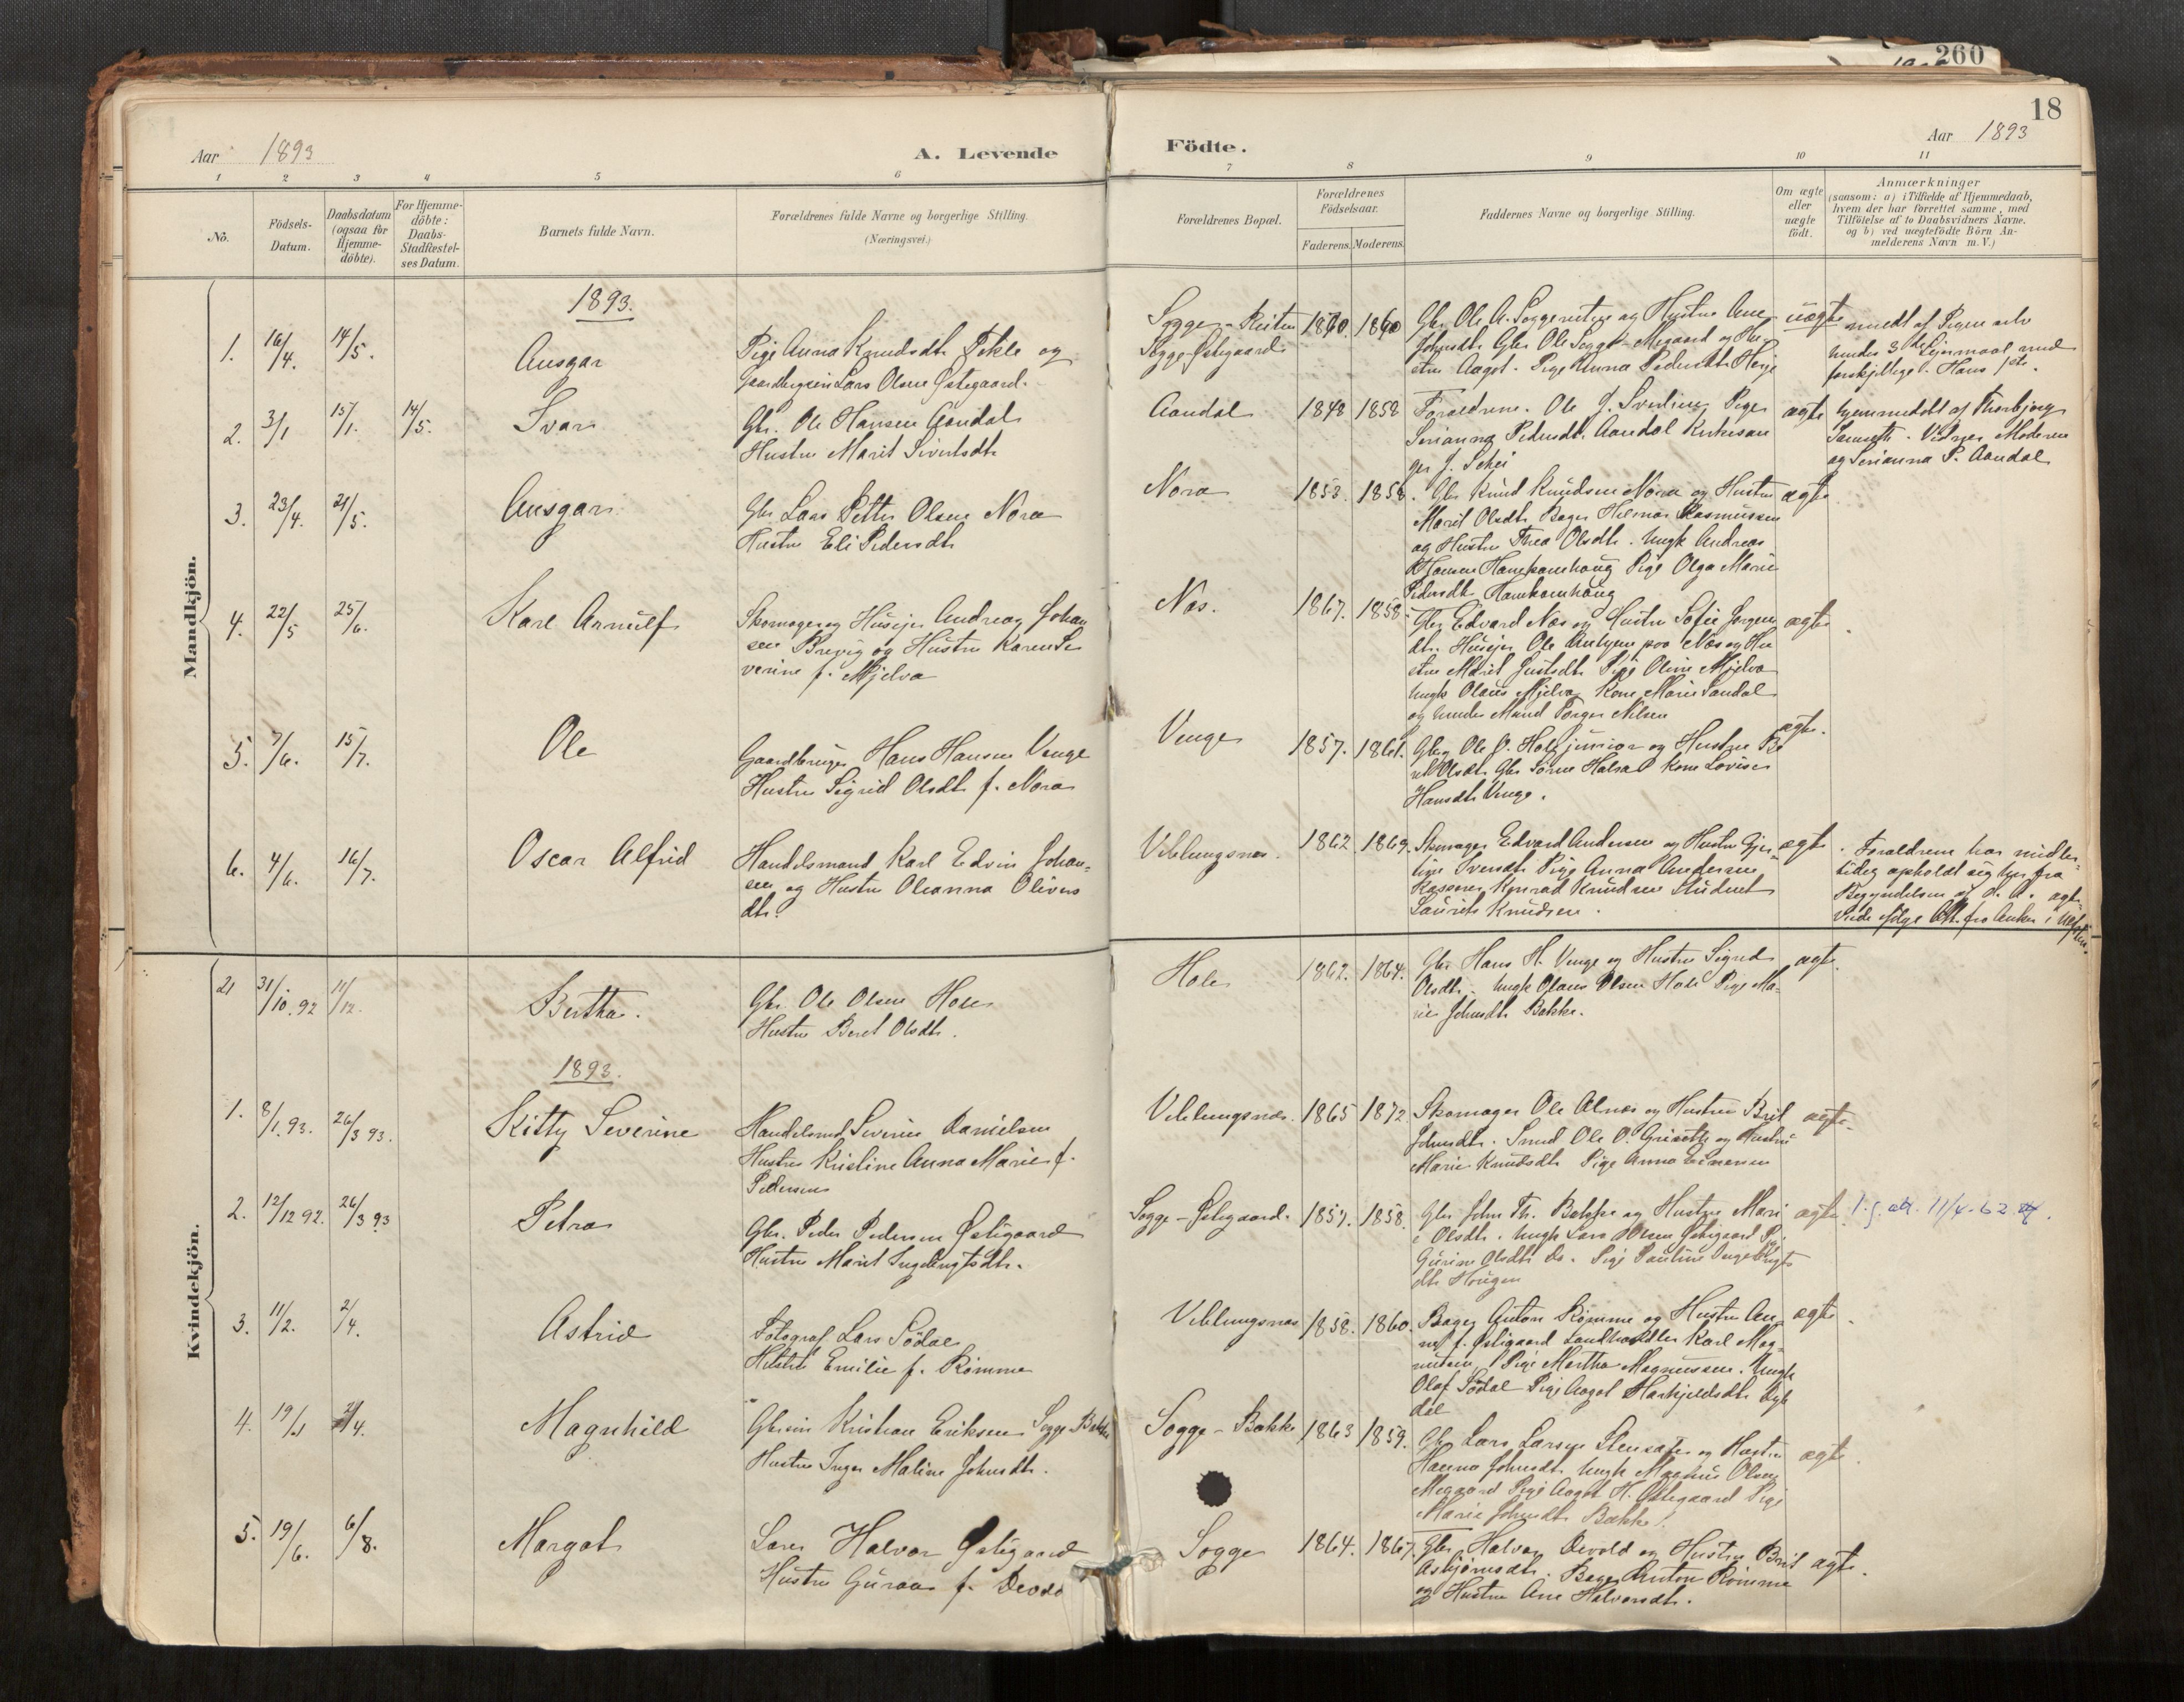 260
18
Aar 1893
A. Levende
Födte.
Aar 1893
1 2 3 4 5 6 7 8 9 10 11
No.
Födsels-
Datum.
Daabsdatum
(ogsaa for
Hjemme-
döbte).
For Hjemme-
döbte:
Daabs-
Stadfæstel-
ses Datum.
Barnets fulde Navn.
Forældrenes fulde Navne og borgerlige Stilling.
(Næringsvei.)
Forældrenes Bopæl.
Forældrenes
Födselsaar.
Faderens. Moderens.
Faddernes Navne og borgerlige Stilling.
Om ægte
eller
uægte
födt.
Anmærkninger
(saasom: a) i Tilfælde af Hjemmedaab,
hvem der har forrettet samme, med
Tilföielse af to Daabsvidners Navne.
og b) ved uægtefödte Börn An-
melderens Navn m. V.)
Mandkjön.
1893.
1. 16/4. 14/5. Ansgar
Pige Anna Knudsdtr og
Gaardbrugersön Lars Olsen Østegaard.
Sogge-
Sogge-Østegaard
1870. 1860
Gbr. Ole A. Soggereiten og Hustru Ane
Johnsdtr. Gbr Ole Sogge-Megaard og Hu-
stru Aagot. Pige Anna Pedersdtr
uægte
meldt af Pigen selv
hendes 3de Leiermaal med
forskjellige. Hans 1ste.
2. 3/1 15/1. 14/5. Ivar
Gbr. Ole Hansen Aandal
Hustru Marit Sivertsdtr
Aandal 1848 1858
Forældrene. Ole J. Pige
Serianna Pedersdtr. Aandal Kirkesan
ger J. Setei
ægte
hjemmedøbt af Thorbjørg
Vidner Moderen
og Serianna P. Aandal
3. 23/4. 21/5. Ansgar
Gbr Lars Petter Olsen Nora
Hustru Eli Pedersdtr
Nora 1853. 1858.
Gbr Knud Knudsen Nora og Hustru
Marit Olsdtr. Bager Hilmar Rasmussen
og Hustru Thea Olsdtr. Ungk Andreas
Pige Olga Marie
Pedersdtr
ægte
4. 22/5 25/6. Karl Arnulf
Skomager og Huseier Andreas Johan
sen Brevig og Hustru Karen Se
verine f. Mjelva
Næs. 1867. 1858.
Gbr Edvard Næs og Hustru Sofie Jørgens
dtr. Huseier Ole paa Næs og Hu
stru Marit Pige Oline Mjelva
Ungk Olaus Mjelva Kone Marie Sandal
og hendes Mand Torger Nilsen
ægte
5. 7/6. 15/7. Ole
Gaardbruger Hans Hansen Venge
Hustru Sigrid Olsdtr f. Nora
Venge 1857. 1861.
Gbr Ole O. Hole junior og Hustru Be
ret Olsdtr. Gbr Søren Halsa Kone Lovise
Hansdtr Venge.
ægte.
6. 4/6. 16/7. Oscar Alfrid
Handelsmand Karl Edvin Johan-
sen og Hustru Oleanna Olivers
dtr.
Veblungsnæs. 1862. 1869.
Skomager Edvard Andersen og Hustru
Iversdtr Pige Anna Andersen
Kasserer Konrad Knudsen Student
Laurits Knudsen.
ægte
Forældrene har midler-
tidig opholdt sig her fra
Begyndelsen af d. A. ægte-
viede ifølge Att. fra
Kvindekjön.
21 31/10.92 11/12. Bertha.
Gbr. Ole Olsen Hole
Hustru Beret Olsdtr.
Hole 1862. 1864.
Gbr Hans H. Venge og Hustru Sigrid
Olsdtr. Ungk Olaus Olsen Hole Pige Ma-
rie Johnsdtr Bakke.
ægte.
1893.
1. 8/1.93. 26/3 93. Kitty Severine
Handelsmd Severin Danielsen
Hustru Kristine Anna Marie f.
Pedersen
Veblungsnæs. 1865 1872
Skomager Ole Alnæs og Hustru Brit
Johnsdtr. Smed Ole O. Grisetth og Hustru
Marie Knudsdtr Pige Anna Einersen
ægte.
2. 12/12 92. 26/3 93 Petra
Gbr. Peder Pedersen Østigaard
Hustru Marit Ingebrigtsdtr.
Sogge-Østegaard. 1857. 1858.
Gbr John Th. Bakke og Hustru Mari
e Olsdtr. Ungk Lars Olsen Østigaard Pi.
Gurine Olsdtr do. Pige Pauline Ingebrigts
dtr Hougen
ægte. 11/4-62
3. 11/2. 2/4. Astrid
Fotograf Lars Södal
Hustru Emilie f. Rømme
Veblungsnæs 1858. 1860.
Bager Anton Rømme og Hustru An-
ne f. Østigaard Landhandler Karl Mag-
nusen, Pige Martha Magnussen. Ungk
Olaf Södal Pige Aagot
dal
ægte.
4. 19/1 2/4. Magnhild
Kristian Eriksen Sogge-Bakke
Hustru Inger Maline Johnsdtr.
Sogge-Bakke 1863 1859.
Gbr Lars Larsen og Hustru
Hanna Johnsdtr. Ungk Magnus Olsen
Megaard Pige Aagot H. Østegaard Pige
Marie Johnsdtr Bakke.
ægte.
5. 19/6. 6/8. Margot
Halvor Østigaard
Hustru Guroa f. Devold
Sogge 1864. 1867.
Gbr Halvor Devold og Hustru Brit
Asbjørnsdtr. Bager Anton Rømme
og Hustru Ane Halvorsdtr.
ægte.